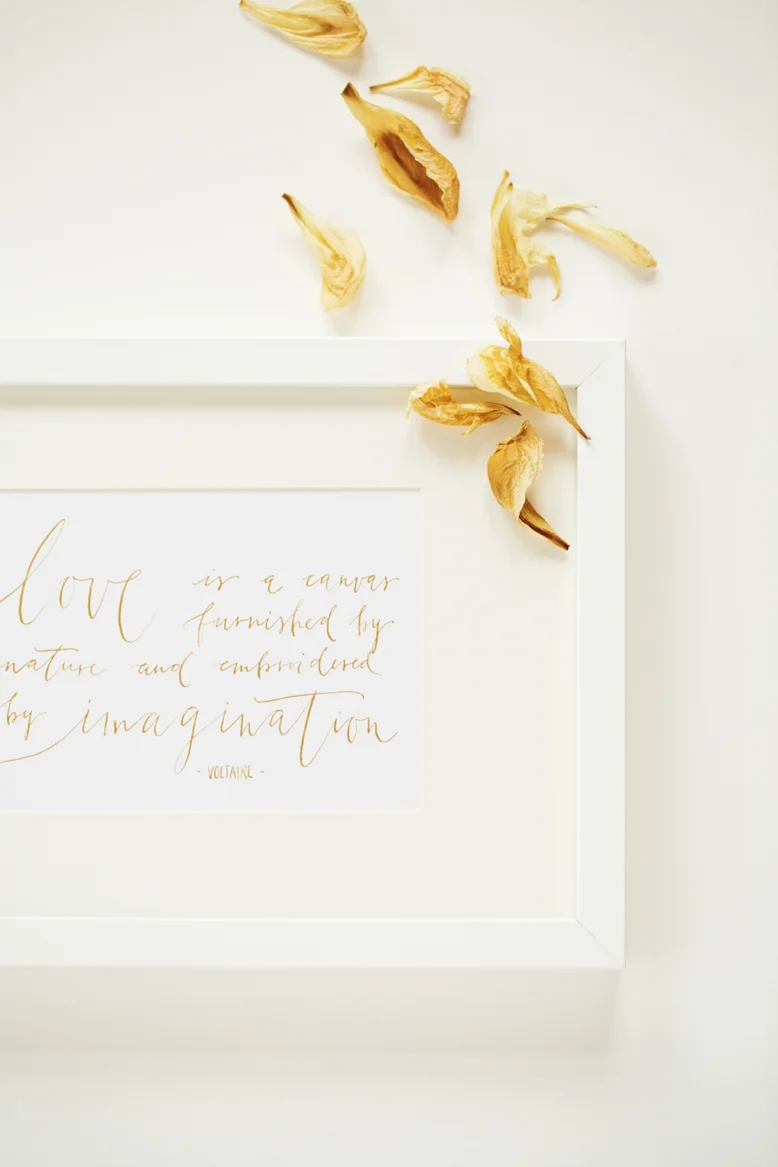 love is a canvas
furnished by
nature and embroidered
by imagination
- VOLTAIRE -